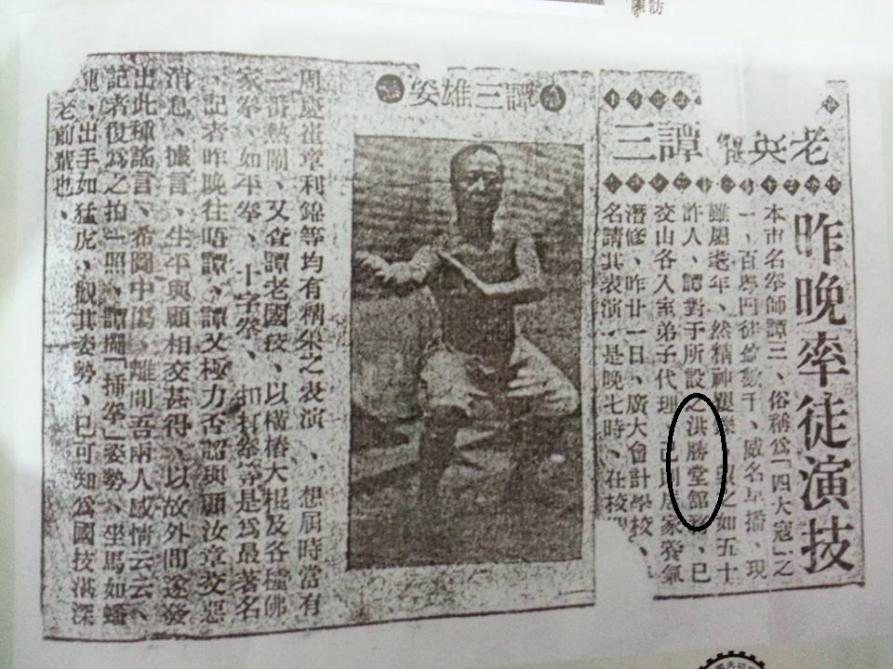 老英雄譚三
昨晚率徒演技
本市名拳師譚三、俗稱爲「四大寇」之
一、門徒數千、威名早播、現
雖屬老年、然精神矍、望之如五十
許人、譚對于所設之洪勝堂館務、已
交由各入室弟子代理、己則居家養氣
潛修、昨廿一日、廣大會計學校、
名請其表演、是晚七時、在校
譚三雄姿
周慶崔章利錦等均有精彩之表演、想屆時當有
一番熱鬧、又查譚老國技、以橫樁大棍及各種佛
家拳、如平拳、十字拳、扣打拳等是爲最著名
、記者昨晚往晤譚、譚又極力否認與顧汝章交惡
消息、據言、生平與顧相交甚得、以故外間遂發
出此種謠言、希圖中傷、離間吾兩人感情云云、
記者復爲之拍一照、譚擺「插拳」姿勢、坐馬如蟠
龍、出手如猛虎、觀其姿勢、已可知爲國技湛深
老前輩也、